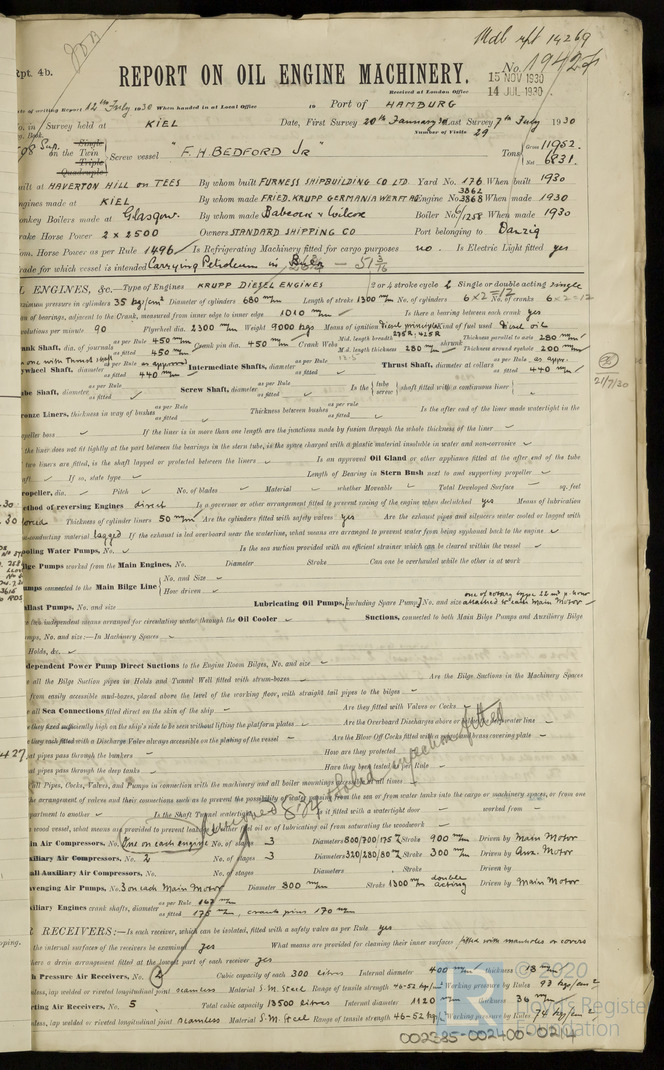 Mdl rpt 14269
Rpt. 4b.
No. 19424
REPORT ON OIL ENGINE MACHINERY.
15 NOV 1930
Received at London Office 14 JUL 1930
of writing Report 12th July 1930 When handed in at Local Office 19 Port of HAMBURG
No. in Survey held at KIEL Date, First Survey 20th January 30 Last Survey 7th July 1930
Number of Visits 29
on the Single Twin Triple Quadruple Screw vessel "F. H. BEDFORD Jr" Tons Gross 11952. Net 6831.
built at HAVERTON HILL on TEES By whom built FURNESS SHIPBUILDING CO LTD Yard No. 176 When built 1930
Engines made at KIEL By whom made FRIED. KRUPP GERMANIA WERFT AG Engine No. 3862 3868 When made 1930
Donkey Boilers made at Glasgow. By whom made Babcock & Wilcox Boiler No. 6/1258 When made 1930
Brake Horse Power 2 x 2500 Owners STANDARD SHIPPING CO Port belonging to Danzig
Nom. Horse Power as per Rule 1496 Is Refrigerating Machinery fitted for cargo purposes no. Is Electric Light fitted yes
Trade for which vessel is intended Carrying Petroleum in Bulk — 51 3/16
OIL ENGINES, &c.—Type of Engines KRUPP DIESEL ENGINES 2 or 4 stroke cycle 2 Single or double acting single
Maximum pressure in cylinders 35 kg/cm² Diameter of cylinders 680 m/m Length of stroke 1300 m/m No. of cylinders 6x2=12 No. of cranks 6x2=12
of bearings, adjacent to the Crank, measured from inner edge to inner edge 1010 m/m Is there a bearing between each crank yes
Revolutions per minute 90 Flywheel dia. 2300 m/m Weight 9000 kgs Means of ignition diesel principle Kind of fuel used diesel oil
Crank Shaft, dia. of journals as per Rule 450 m/m as fitted 450 m/m Crank pin dia. 450 m/m Crank Webs Mid. length breadth Mid. length thickness 280 m/m shrunk Thickness parallel to axis 280 m/m Thickness around eyehole 200 m/m
one with Thrust shaft
Flywheel Shaft, diameter as per Rule as approved as fitted 440 m/m Intermediate Shafts, diameter as per Rule as fitted Thrust Shaft, diameter at collars as per Rule as appr. as fitted 440 m/m
21/7/30
Tube Shaft, diameter as per Rule as fitted Screw Shaft, diameter as per Rule as fitted Is the tube screw shaft fitted with a continuous liner
Bronze Liners, thickness in way of bushes as per Rule as fitted Thickness between bushes as per Rule as fitted Is the after end of the liner made watertight in the
propeller boss If the liner is in more than one length are the junctions made by fusion through the whole thickness of the liner
the liner does not fit tightly at the part between the bearings in the stern tube, is the space charged with a plastic material insoluble in water and non-corrosive
two liners are fitted, is the shaft lapped or protected between the liners Is an approved Oil Gland or other appliance fitted at the after end of the tube
shaft. If so, state type Length of Bearing in Stern Bush next to and supporting propeller
Propeller, dia. Pitch No. of blades Material whether Moveable Total Developed Surface sq. feet
Method of reversing Engines direct Is a governor or other arrangement fitted to prevent racing of the engine when declutched yes Means of lubrication
forced Thickness of cylinder liners 50 m/m Are the cylinders fitted with safety valves yes Are the exhaust pipes and silencers water cooled or lagged with
non-conducting material lagged If the exhaust is led overboard near the waterline, what means are arranged to prevent water from being syphoned back to the engine
Cooling Water Pumps, No. Is the sea suction provided with an efficient strainer which can be cleared within the vessel
Bilge Pumps worked from the Main Engines, No. Diameter Stroke Can one be overhauled while the other is at work
Pumps connected to the Main Bilge Line No. and Size How driven
Ballast Pumps, No. and size Lubricating Oil Pumps, including Spare Pump, No. and size one of rotary type 22 m³ p. hour attached to each Main Motor
two independent means arranged for circulating water through the Oil Cooler Suctions, connected to both Main Bilge Pumps and Auxiliary Bilge
Pumps, No. and size:—In Machinery Spaces
Holds, &c.
Independent Power Pump Direct Suctions to the Engine Room Bilges, No. and size
all the Bilge Suction pipes in Holds and Tunnel Well fitted with strum-boxes Are the Bilge Suctions in the Machinery Spaces
from easily accessible mud-boxes, placed above the level of the working floor, with straight tail pipes to the bilges
all Sea Connections fitted direct on the skin of the ship Are they fitted with Valves or Cocks
they fixed sufficiently high on the ship's side to be seen without lifting the platform plates Are the Overboard Discharges above or below the deep water line
they each fitted with a Discharge Valve always accessible on the plating of the vessel Are the Blow Off Cocks fitted with a spigot and brass covering plate
What pipes pass through the bunkers How are they protected
What pipes pass through the deep tanks Have they been tested as per Rule
all Pipes, Cocks, Valves, and Pumps in connection with the machinery and all boiler mountings accessible at all times
the arrangement of valves and their connections such as to prevent the possibility of water passing from the sea or from water tanks into the cargo or machinery spaces, or from one
compartment to another Is the Shaft Tunnel watertight Is it fitted with a watertight door worked from
a wood vessel, what means are provided to prevent leakage of fuel oil or lubricating oil from saturating the woodwork
solid injection fitted
Main Air Compressors, No. One on each engine No. of stages 3 Diameters 800/700/175 Stroke 900 m/m Driven by Main Motor
Auxiliary Air Compressors, No. 2 No. of stages 3 Diameters 320/280/80 Stroke 300 m/m Driven by Aux. Motor
Small Auxiliary Air Compressors, No. No. of stages Diameters Stroke Driven by
Scavenging Air Pumps, No. 3 on each Main Motor Diameter 800 m/m Stroke 1300 m/m double acting Driven by Main Motor
Auxiliary Engines crank shafts, diameter as per Rule 167 m/m as fitted 175 m/m, crank pins 170 m/m
AIR RECEIVERS:—Is each receiver, which can be isolated, fitted with a safety valve as per Rule yes
the internal surfaces of the receivers be examined yes What means are provided for cleaning their inner surfaces fitted with manholes or covers
there a drain arrangement fitted at the lowest part of each receiver yes
High Pressure Air Receivers, No. 2 Cubic capacity of each 300 litres Internal diameter 400 m/m thickness 18 m/m
Seamless, lap welded or riveted longitudinal joint seamless Material S.M. Steel Range of tensile strength 46-52 kg/m² Working pressure by Rules 93 kg/cm²
Starting Air Receivers, No. 5 Total cubic capacity 13500 litres Internal diameter 1120 m/m thickness 36 m/m
Seamless, lap welded or riveted longitudinal joint seamless Material S.M. Steel Range of tensile strength 46-52 kg/m² Working pressure by Rules 74 kg/cm²
© 2020
Lloyd's Register
Foundation
002385-002400-0214